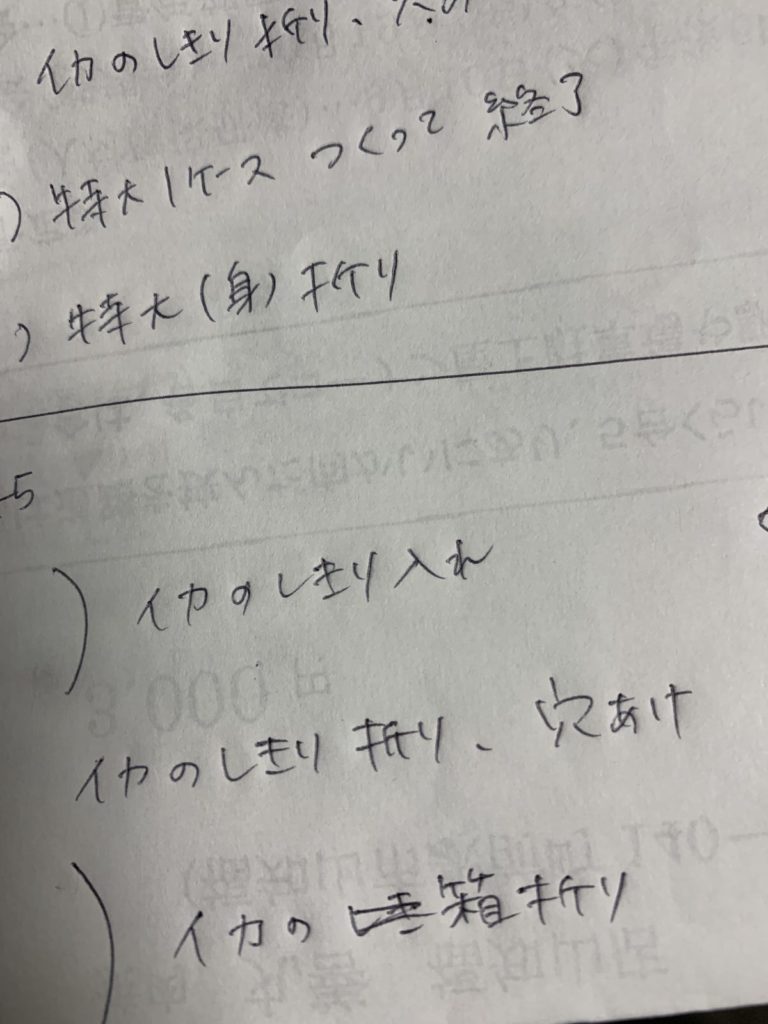 イカのしきり 折り、穴あ
) 特大1ケース つくって 終了
) 特大(身)折り
-5
) イカのしきり入れ
イカのしきり 折り、穴あけ
) イカの 箱折り